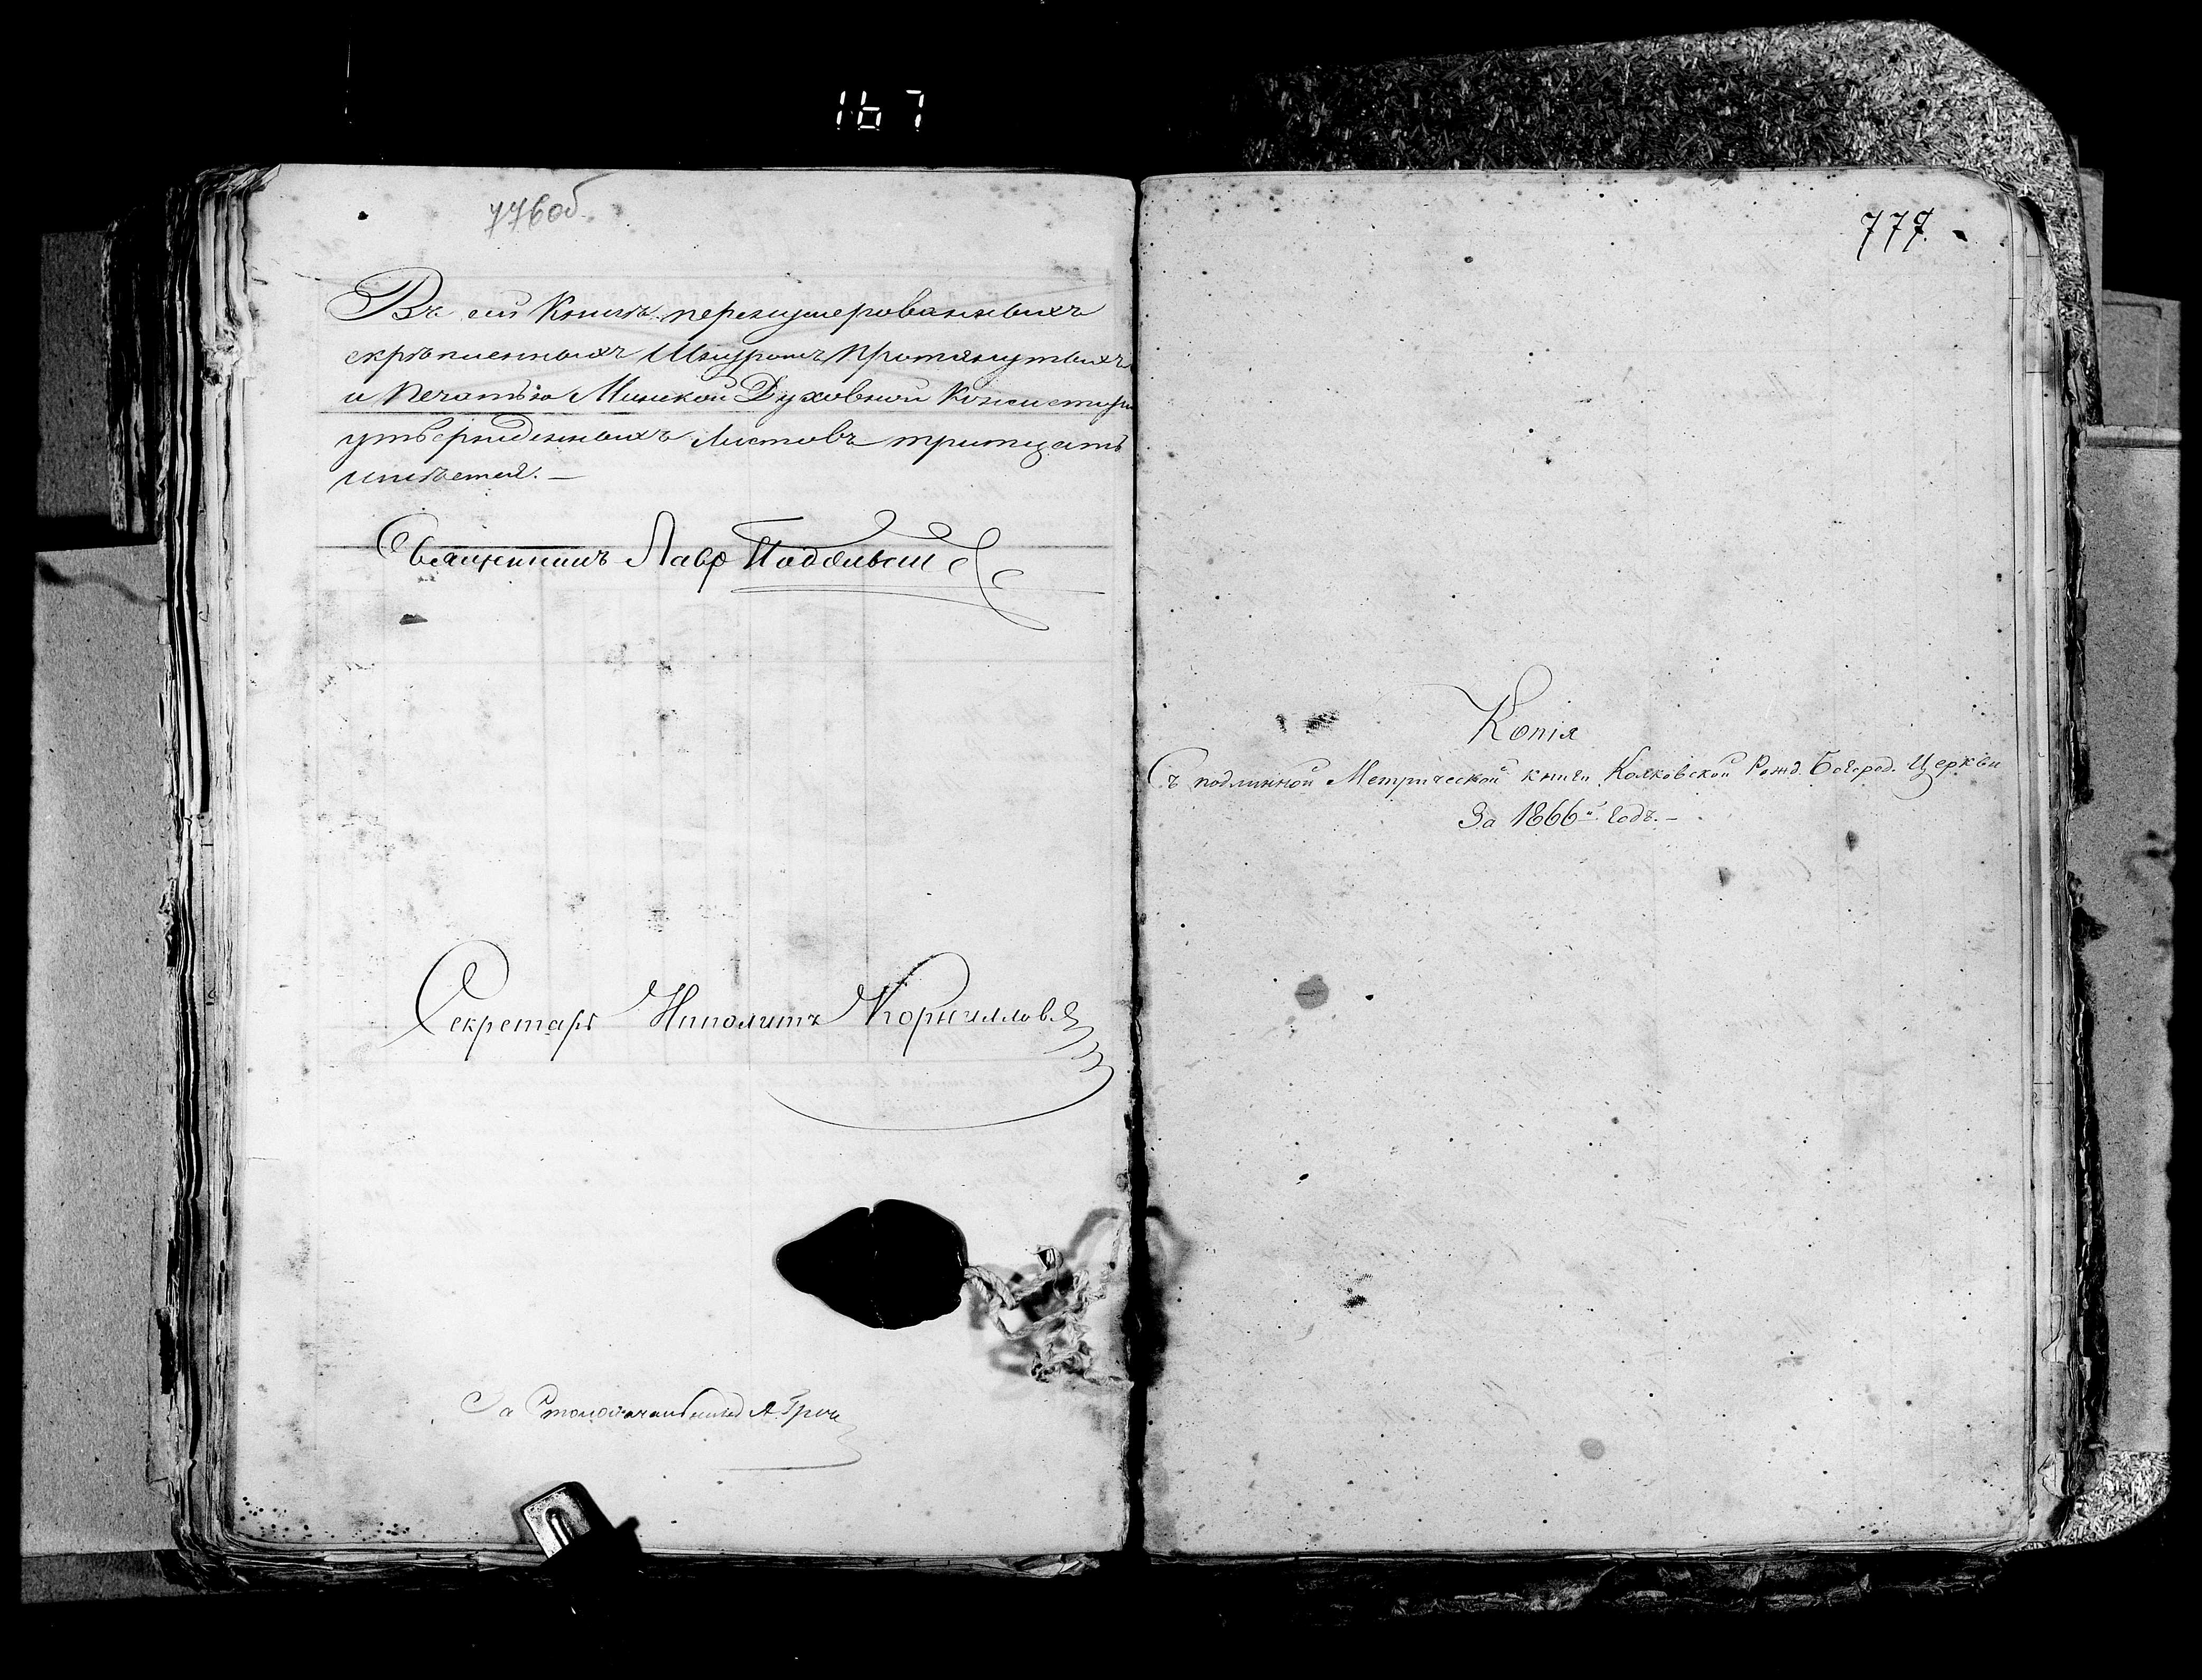 167
776об
Въ сей Книгѣ перенумерованныхъ
скрѣпленныхъ Шнуромъ протянутыхъ
и Печатью Минской Духовной Консистор
утвержденныхъ Листовъ тритцать
имѣется. —
Священникъ Лавр
Секретарь Ипполитъ Корниловъ
За Столоначальника А.
777.
Копія
Съ подлинной Метрической книги Колковской Рожд. Богород. Церкви
За 1866й. Годъ. —